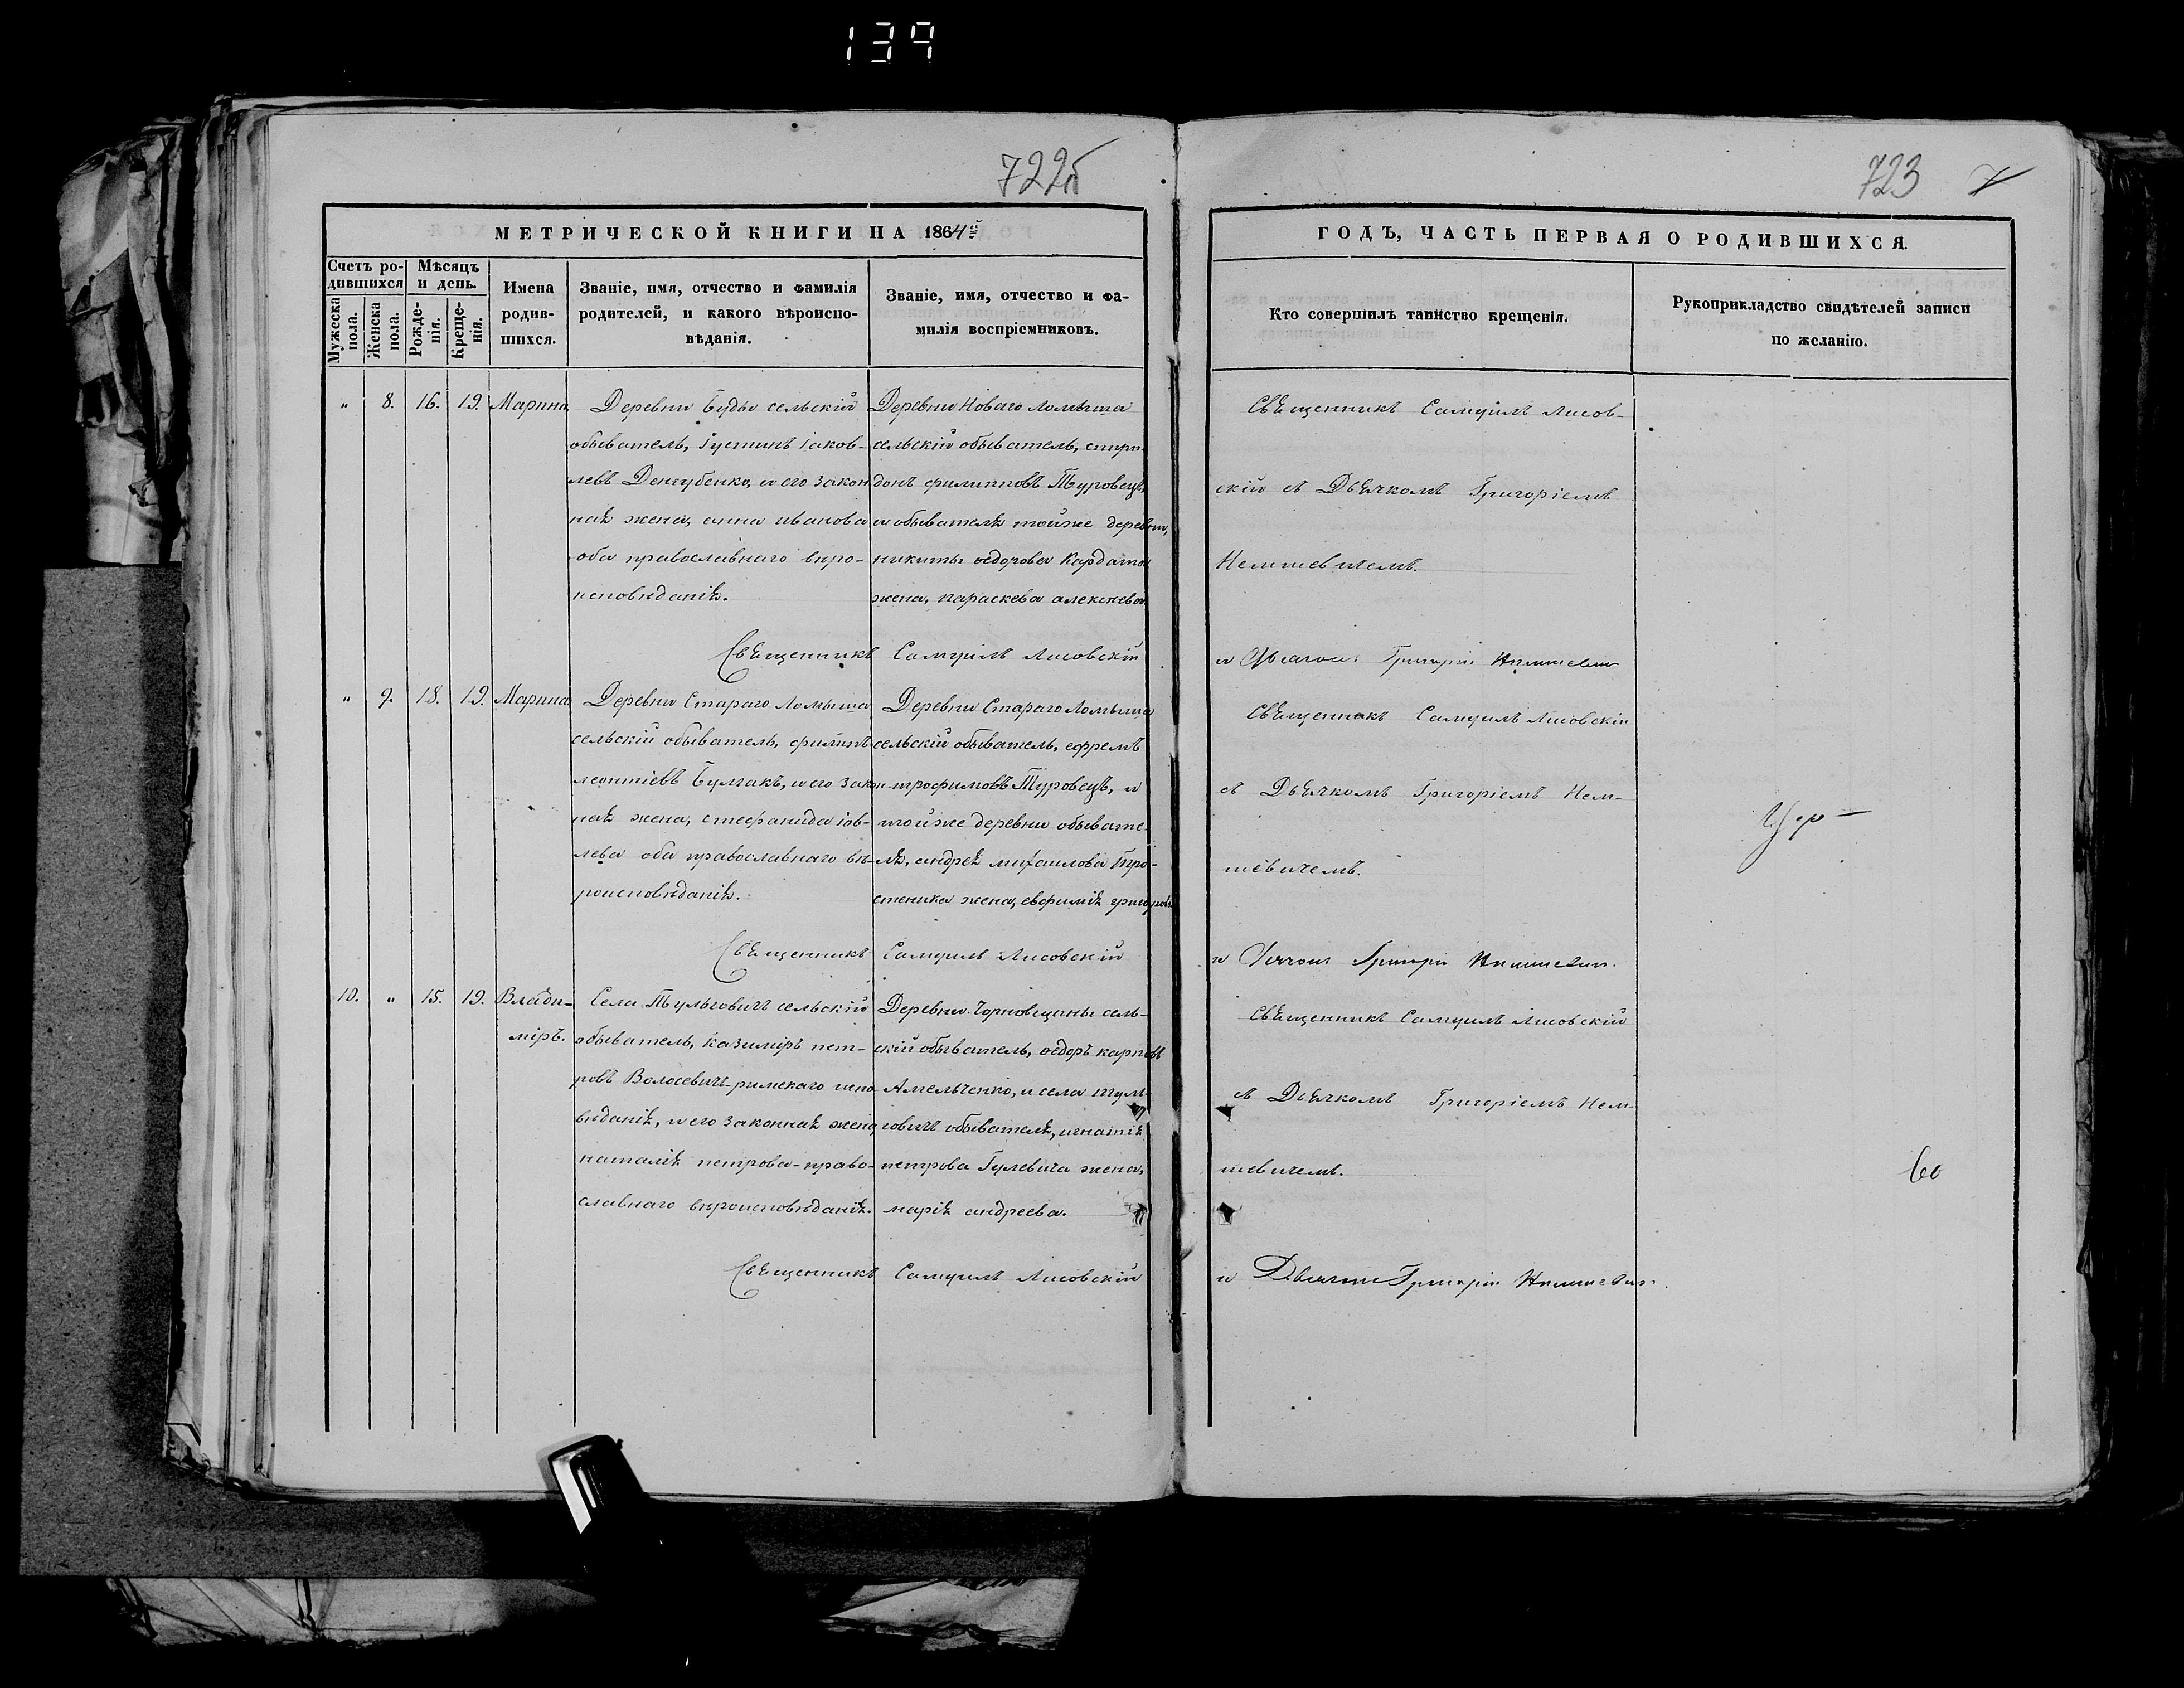 139
722б
723
МЕТРИЧЕСКОЙ КНИГИ НА 1864й
ГОДЪ, ЧАСТЬ ПЕРВАЯ О РОДИВШИХСЯ.
Счетъ ро-
дившихся
Мужеска
пола.
Женска
пола.
Мѣсяцъ
и день.
Рожде-
нія.
Креще-
нія.
Имена
родив-
шихся.
Званіе, имя, отчество и фамилія
родителей, и какого вѣроиспо-
вѣданія.
Званіе, имя, отчество и фа-
милія воспріемниковъ.
Кто совершилъ таинство крещенія.
Рукоприкладство свидѣтелей записи
по желанію.
" 8. 16. 19. Марина
Деревни Буды сельскій
обыватель, Іустинъ Іаков-
левъ Денгубенко, и его закон
ная жена, анна иванова
оба православнаго веро-
исповѣданія.
Деревни Новаго Ломыша
сельскій обыватель, спири
донъ филипповъ Туровецъ,
и обывателя тойже деревни,
никиты ѳедорова Кардаша
жена, параскева алексеева
Священникъ Самуилъ Лисов-
скій съ Дьячкомъ Григоріемъ
Немшевичемъ.
Священникъ Самуилъ Лисовскій
и Григорій
" 9. 18. 19. Марина
Деревни Стараго Ломыша
сельскій обыватель, филипъ
леонтіевъ Булгакъ, и его закон
ная жена, стефанида іов-
лева оба православнаго вѣ-
роисповѣданія.
Деревни Стараго Ломыша
сельскій обыватель, ефремъ
трофимовъ Туровецъ, и
тойже деревни обывате-
ля, андрея михаилова Тро-
стеника жена, евфимія григорова
Священникъ Самуилъ Лисовскій
съ Дьячкомъ Григоріемъ Нем-
шевичемъ.
Священникъ Самуилъ Лисовскій
и Григорій
10. " 15. 19. Влади-
міръ.
Села Тульговичъ сельскій
обыватель, казиміръ пет-
ровъ Волосевичъ-римскаго испо-
вѣданія, и его законная жена,
наталія петрова-право-
славнаго вѣроисповѣданія.
Деревни Чорновщины сель-
скій обыватель, ѳедоръ карповъ
Амельченко, и села туль-
говичъ обывателя, игнатія
петрова Гулевича жена,
марія андреева.
Священникъ Самуилъ Лисовскій
съ Дьячкомъ Григоріемъ Нем-
шевичемъ.
Священникъ Самуилъ Лисовскій
и Дьячокъ Григорій